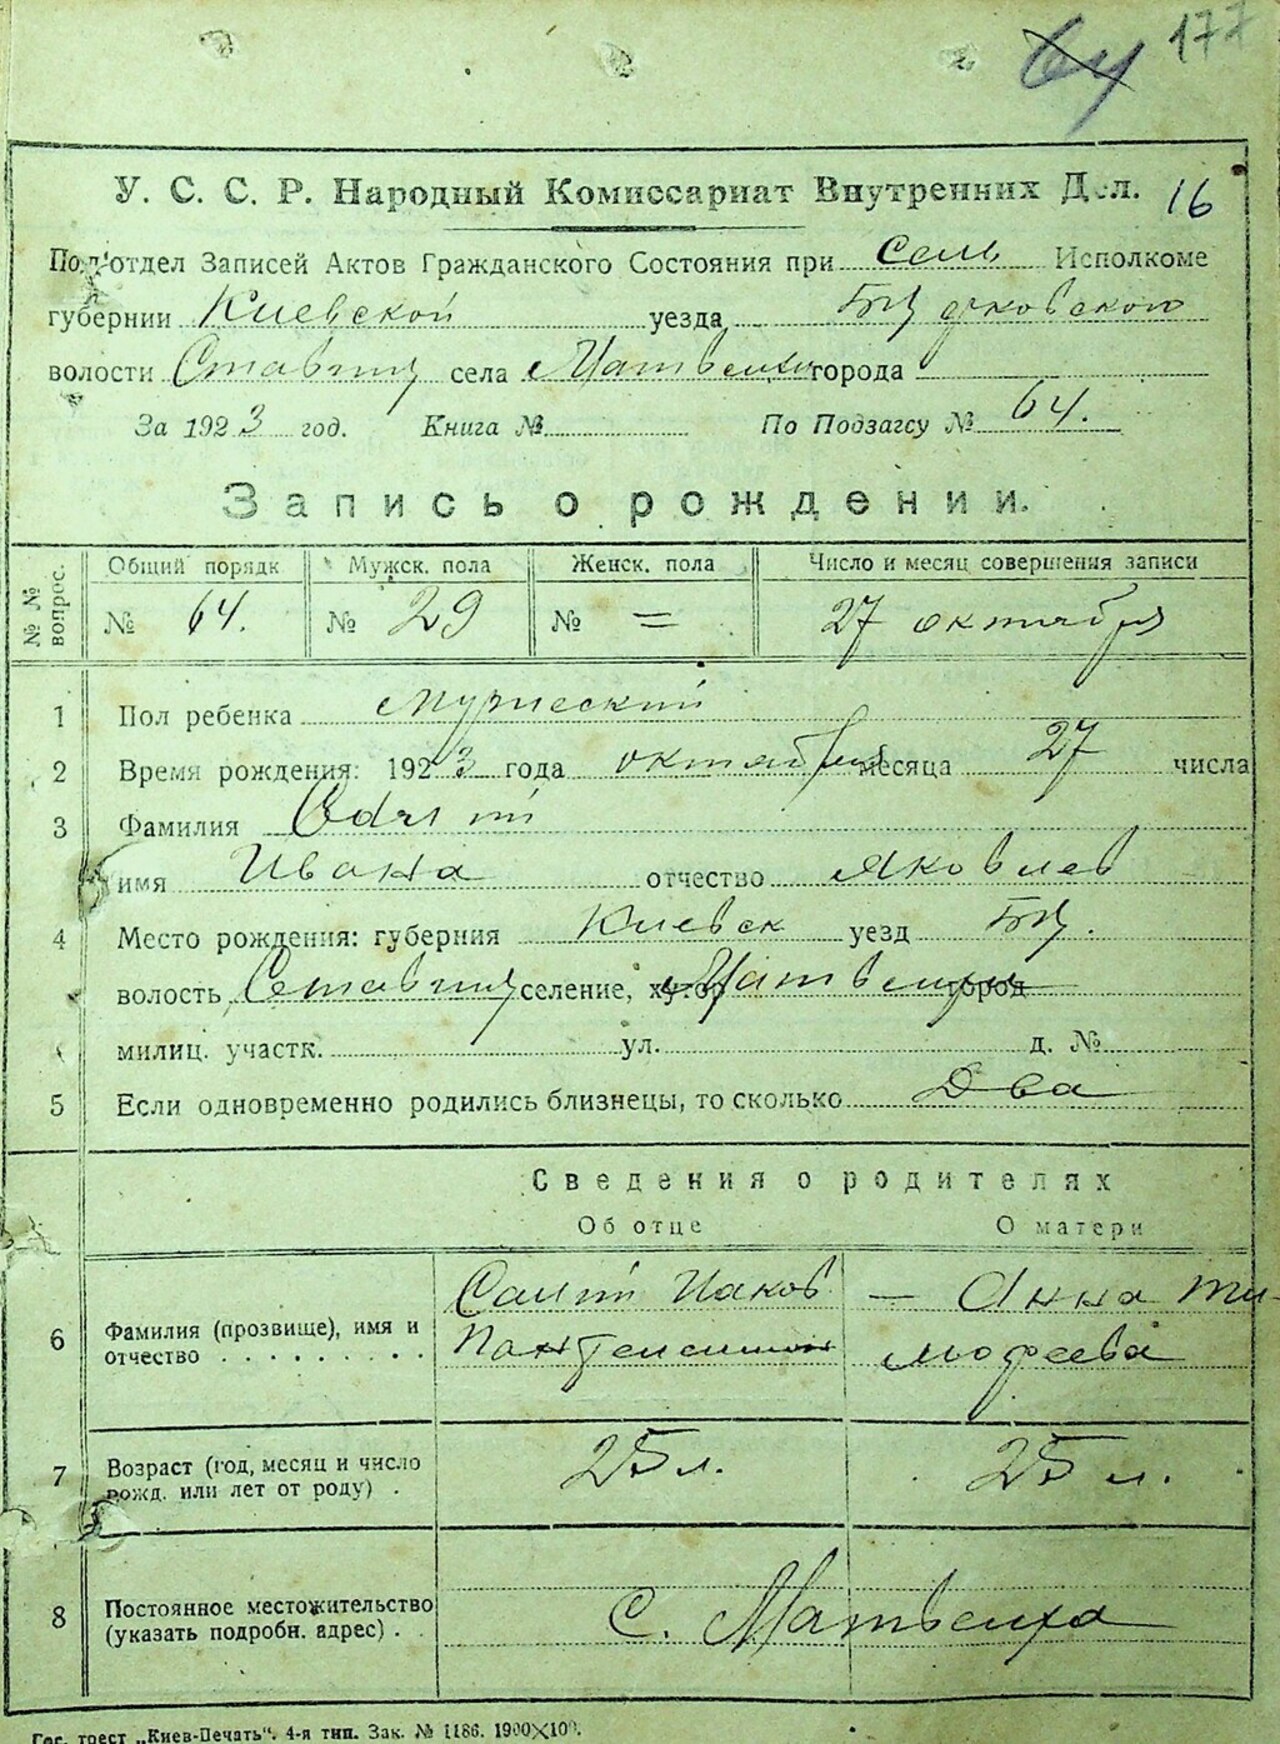 64 177
У. С. С. Р. Народный Комиссариат Внутренних Дел. 16
Подотдел Записей Актов Гражданского Состояния при Сель Исполкоме
губернии Киевской уезда
волости Ставищ села Матвеихи города
За 1923 год. Книга № По Подзагсу № 64.
Запись о рождении.
№ № вопрос. Общий порядк Мужск. пола Женск. пола Число и месяц совершения записи
№ 64. № 29 № = 27 октября
1 Пол ребенка мужеский
2 Время рождения: 1923 года октября месяца 27 числа
3 Фамилия
имя Ивана отчество Яковлев
4 Место рождения: губерния Киевск уезд БЦ.
волость Ставищ селение, хутор Матвеиха город
милиц. участк. ул. д. №
5 Если одновременно родились близнецы, то сколько Два
Сведения о родителях
Об отце О матери
6 Фамилия (прозвище), имя и отчество . . . . . . . . .
Иаков — Анна Ти-
мофеева
7 Возраст (год, месяц и число рожд. или лет от роду) .
25 л. 25 л.
8 Постоянное местожительство (указать подробн. адрес) . .
С. Матвеиха
Гос. трест „Киев-Печать“. 4-я тип. Зак. № 1186. 1900×100.